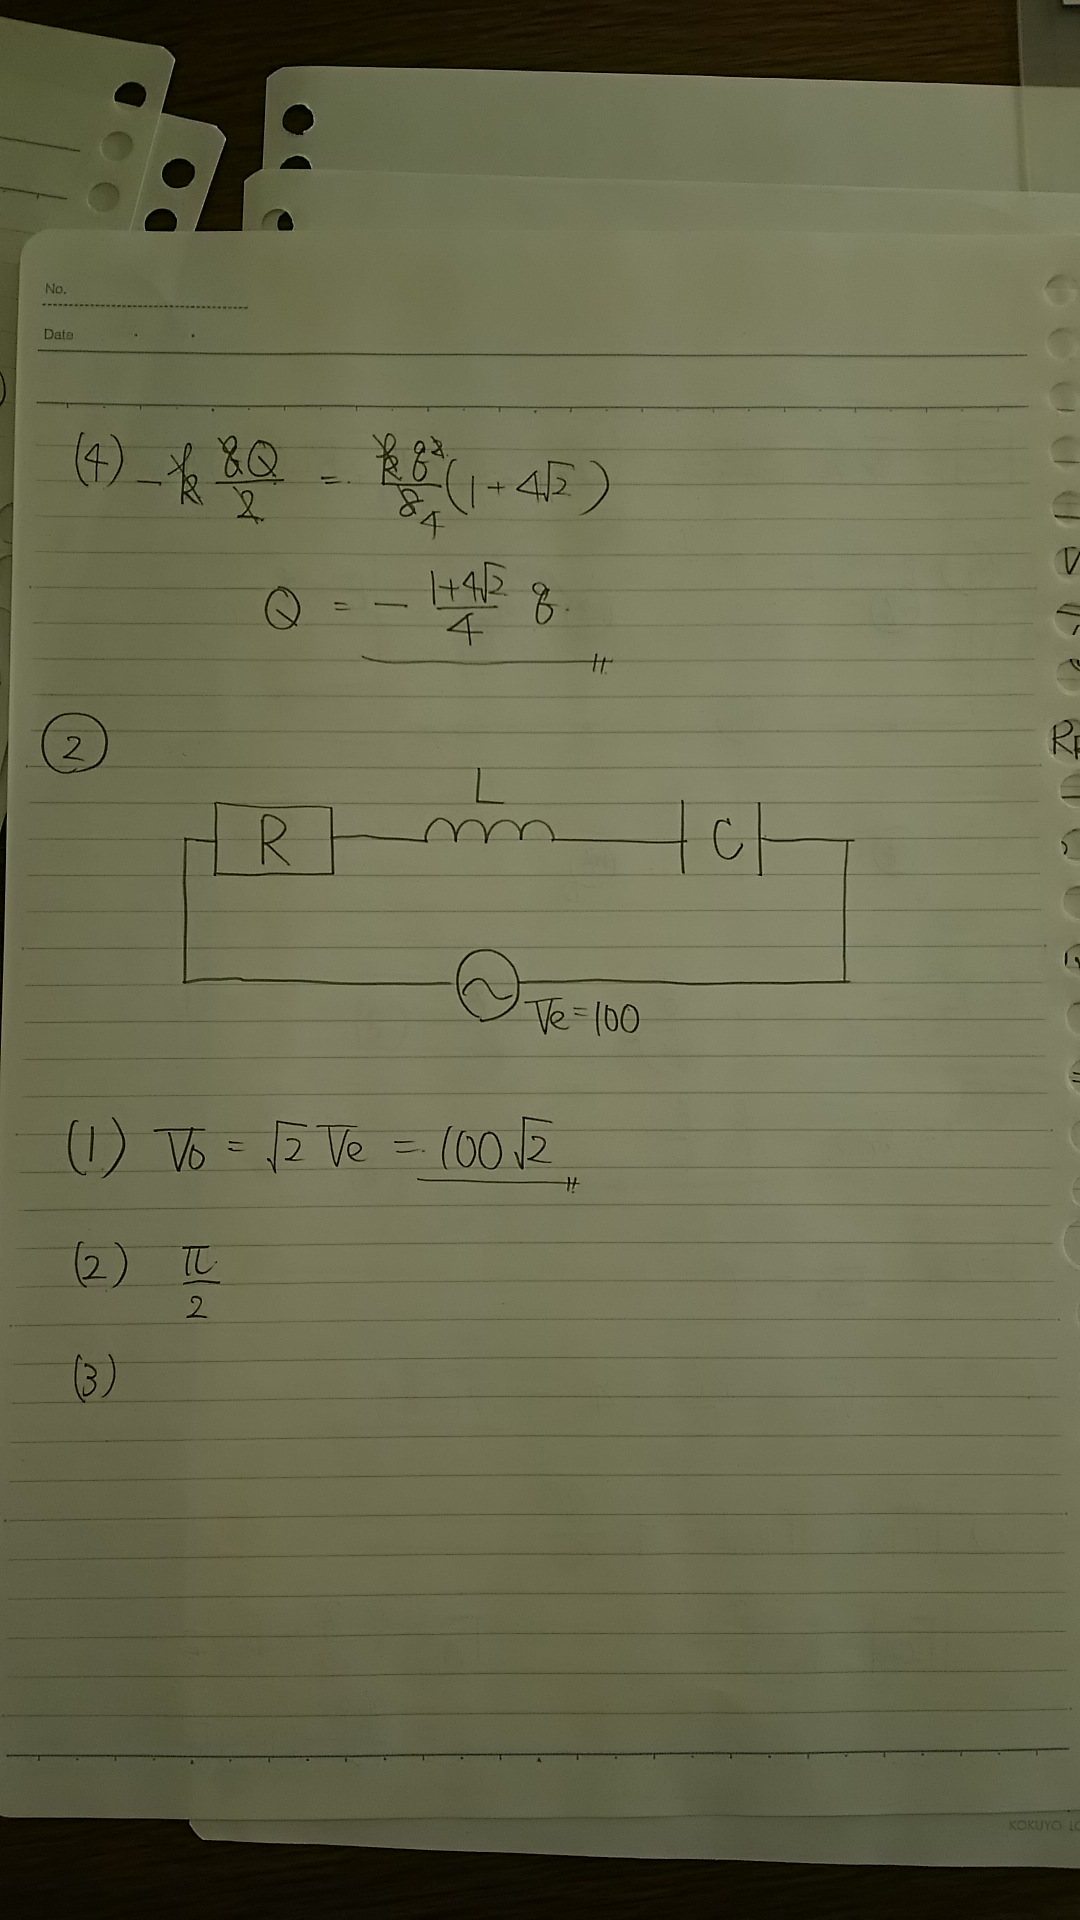 No.
Date
(4) -k qQ/2 = kq²/8 4 (1+4√2)
Q = - 1+4√2/4 q.
②
L
R
C
Ve=100
(1) V0 = √2 Ve = 100√2
(2) π/2
(3)
KOKUYO